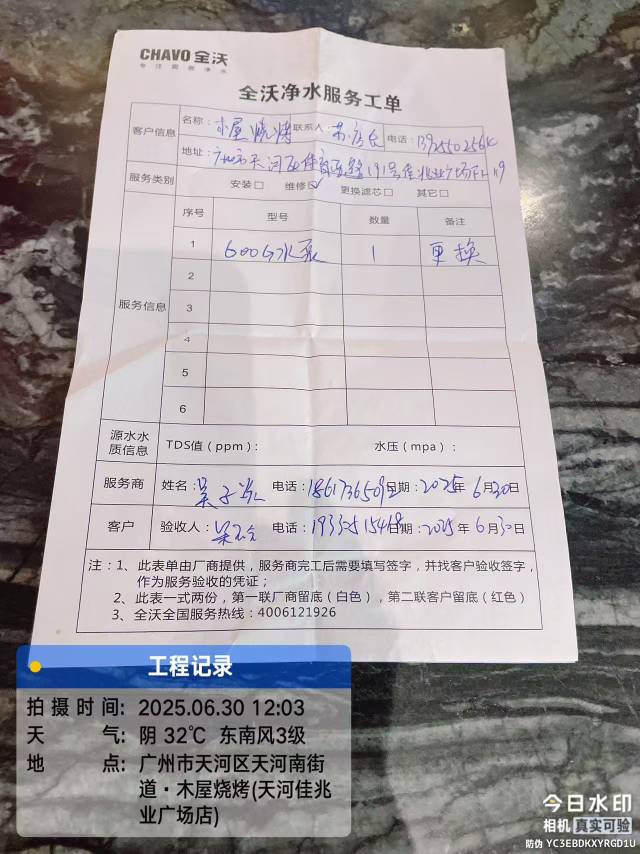 CHAVO 全沃
专注商用净水
全沃净水服务工单
客户信息 名称：木屋烧烤 联系人： 电话：
地址：广州市天河区 191号佳兆业广场
服务类别 安装□ 维修☑ 更换滤芯□ 其它□
服务信息 序号 型号 数量 备注
1 600G水泵 1 更换
2
3
4
5
6
源水水质信息 TDS值（ppm）： 水压（mpa）：
服务商 姓名： 电话： 日期：2025年6月30日
客户 验收人： 电话：19330515468 日期：2025年6月30日
注：1、此表单由厂商提供，服务商完工后需要填写签字，并找客户验收签字，
作为服务验收的凭证；
2、此表一式两份，第一联厂商留底（白色），第二联客户留底（红色）
3、全沃全国服务热线：4006121926
工程记录
拍摄时间：2025.06.30 12:03
天气：阴 32℃ 东南风3级
地点：广州市天河区天河南街
道·木屋烧烤(天河佳兆
业广场店)
今日水印
相机 真实可验
防伪 YC3EBDKXYRGD1U